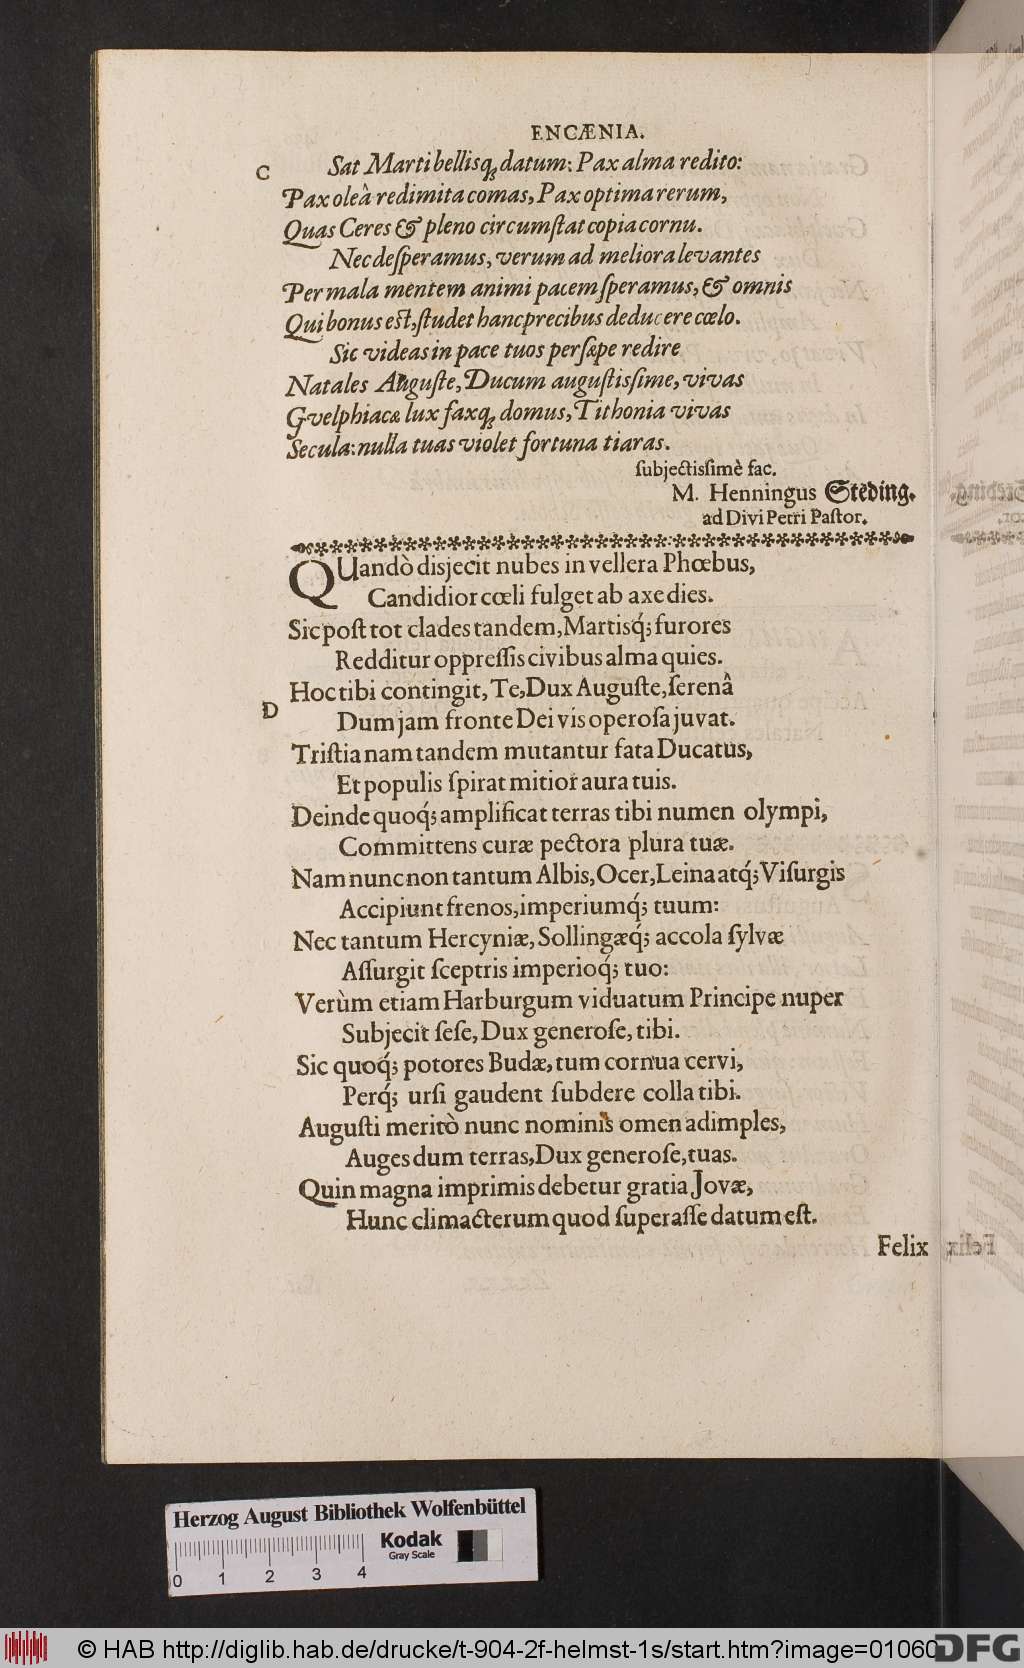 ENCÆNIA.
C
Sat Marti bellisq; datum: Pax alma redito:
Pax oleâ redimita comas, Pax optima rerum,
Quas Ceres & pleno circumſtat copia cornu.
Nec deſperamus, verum ad meliora levantes
Per mala mentem animi pacem ſperamus, & omnis
Qui bonus eſt, ſtudet hanc precibus deducere cœlo.
Sic videas in pace tuos perſæpe redire
Natales Auguſte, Ducum auguſtisſime, vivas
Gvelphiacæ lux faxq; domus, Tithonia vivas
Secula: nulla tuas violet fortuna tiaras.
ſubjectisſimè fac.
M. Henningus Steding.
ad Divi Petri Paſtor.
QUandò disjecit nubes in vellera Phœbus,
Candidior cœli fulget ab axe dies.
Sic poſt tot clades tandem, Martisq́; furores
Redditur oppreſſis civibus alma quies.
Hoc tibi contingit, Te, Dux Auguſte, ſerenâ
D
Dum jam fronte Dei vis operoſa juvat.
Triſtia nam tandem mutantur fata Ducatus,
Et populis ſpirat mitior aura tuis.
Deinde quoq́; amplificat terras tibi numen olympi,
Committens curæ pectora plura tuæ.
Nam nunc non tantum Albis, Ocer, Leina atq́; Viſurgis
Accipiunt frenos, imperiumq́; tuum:
Nec tantum Hercyniæ, Sollingæq́; accola ſylvæ
Aſſurgit ſceptris imperioq́; tuo:
Verùm etiam Harburgum viduatum Principe nuper
Subjecit ſeſe, Dux generoſe, tibi.
Sic quoq́; potores Budæ, tum cornua cervi,
Perq́; urſi gaudent ſubdere colla tibi.
Auguſti meritò nunc nominis omen adimples,
Auges dum terras, Dux generoſe, tuas.
Quin magna imprimis debetur gratia Jovæ,
Hunc climacterum quod ſuperaſſe datum eſt.
Felix
Herzog August Bibliothek Wolfenbüttel
Kodak
Gray Scale
0 1 2 3 4
© HAB http://diglib.hab.de/drucke/t-904-2f-helmst-1s/start.htm?image=01060
DFG